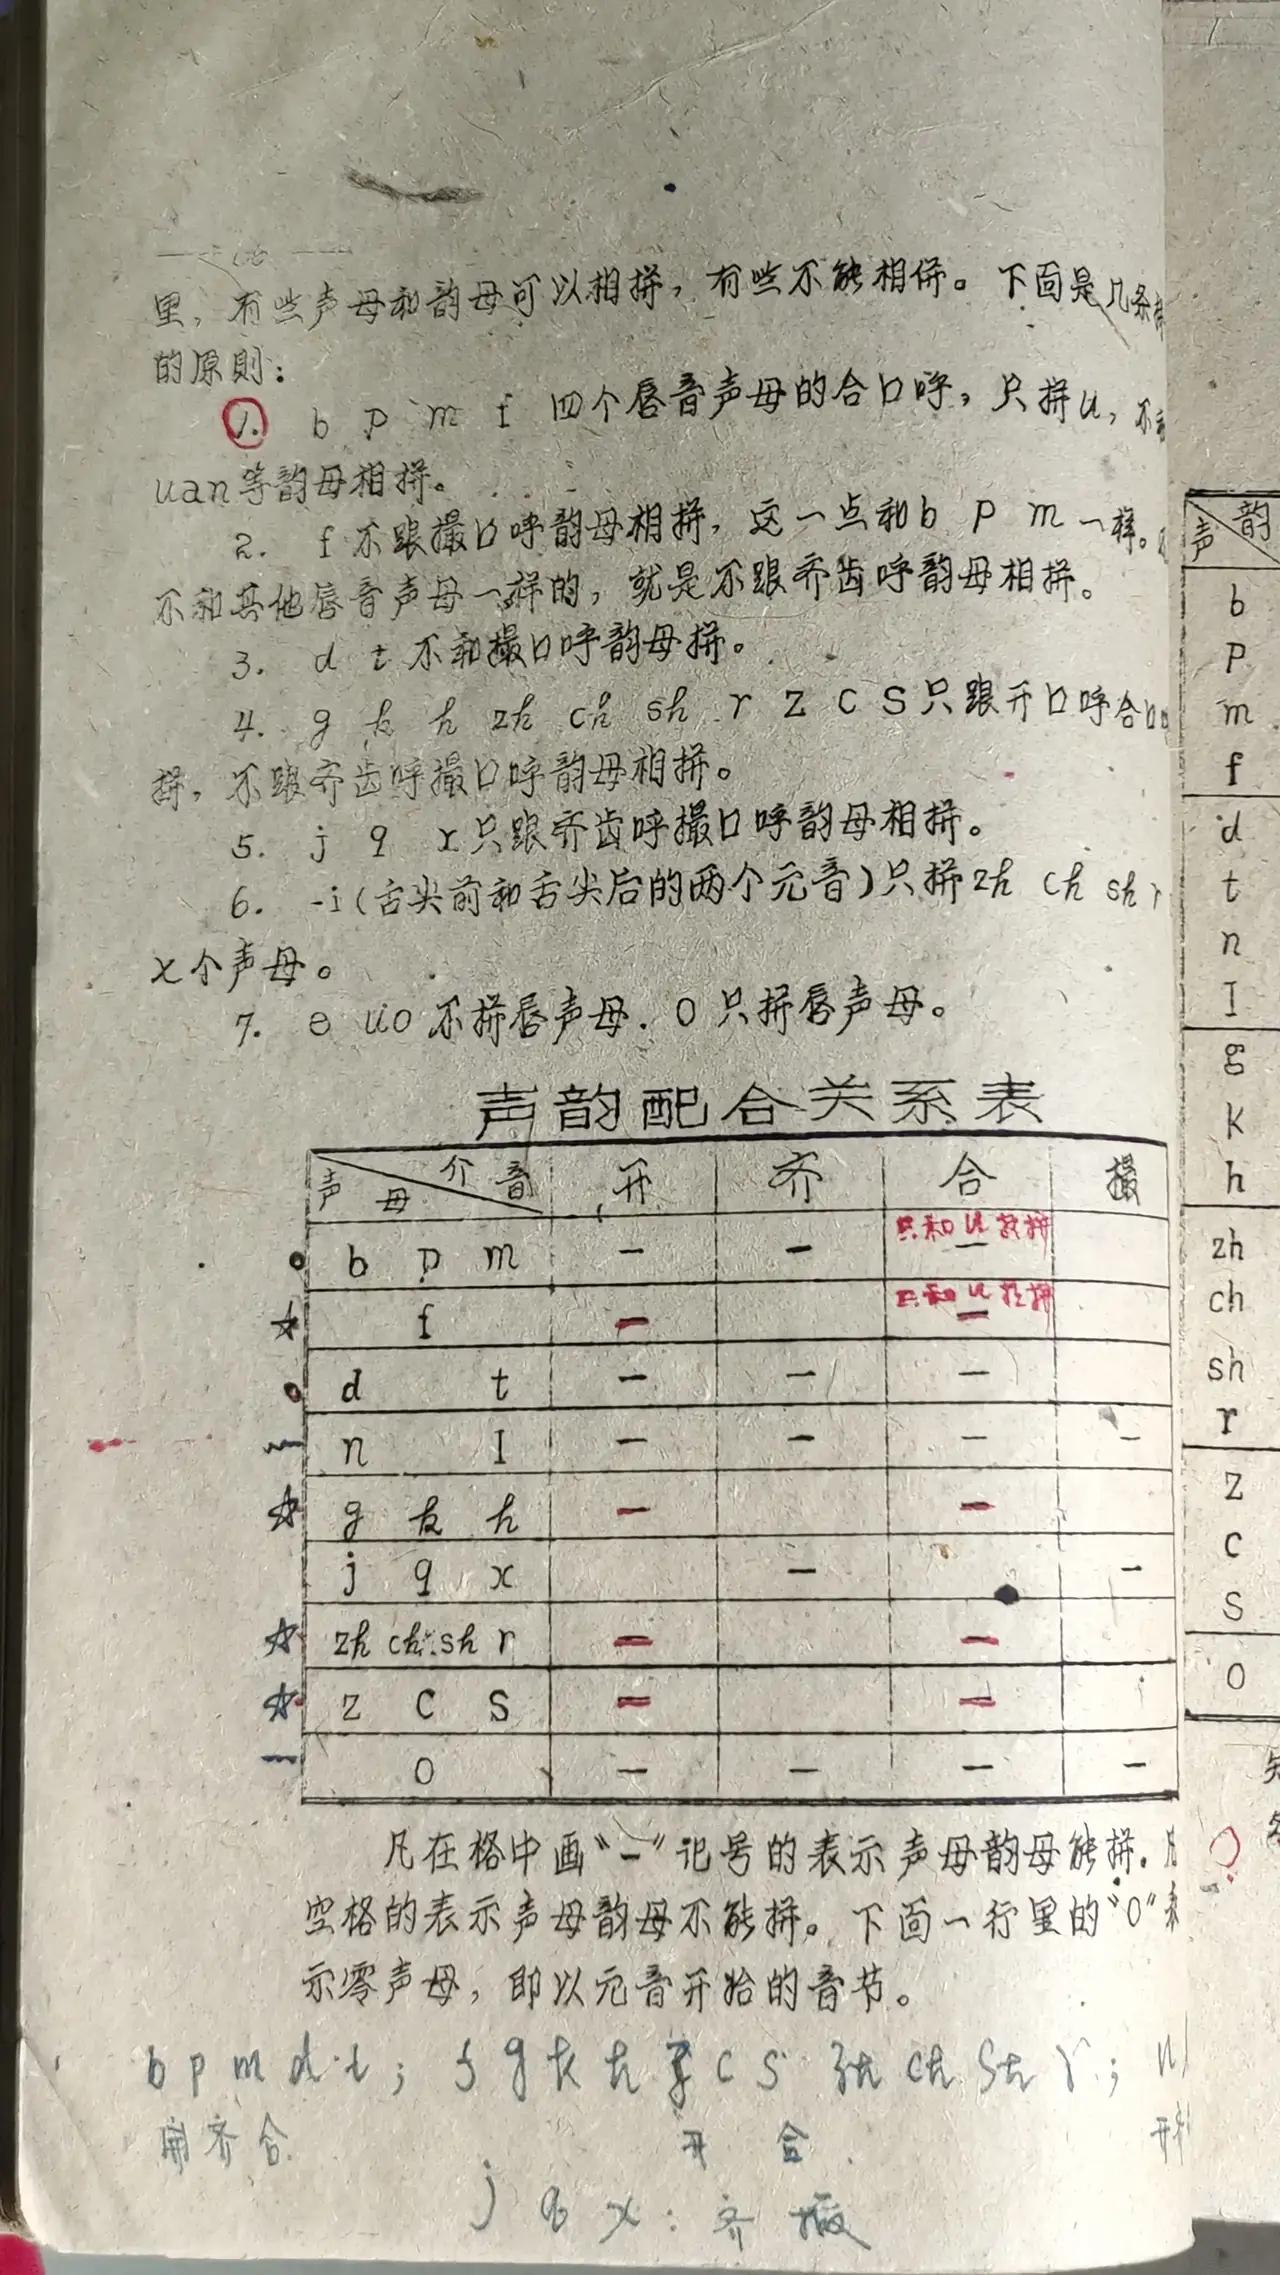 里，有些声母和韵母可以相拼，有些不能相併。下面是几条拼
的原则：
1. b p m f 四个唇音声母的合口呼，只拼u，不和
uan等韵母相拼。
2. f不跟撮口呼韵母相拼，这一点和b p m一样。
不和其他唇音声母一样的，就是不跟齐齿呼韵母相拼。
3. d t 不和撮口呼韵母拼。
4. g k h zh ch sh r z c s只跟开口呼合口
拼，不跟齐齿呼撮口呼韵母相拼。
5. j q x只跟齐齿呼撮口呼韵母相拼。
6. -i(舌尖前和舌尖后的两个元音)只拼zh ch sh r
七个声母。
7. e uo 不拼唇声母. o 只拼唇声母。
声韵配合关系表
声母 介音 开 齐 合 撮
只和u拢拼
b p m — — —
只和u拢拼
f — —
d t — — —
n l — — — —
g k h — —
j q x — —
zh ch sh r — —
z c s — —
0 — — — —
凡在格中画“一”记号的表示声母韵母能拼. 凡
空格的表示声母韵母不能拼。下面一行里的“0”表
示零声母，即以元音开始的音节。
b p m d t ; f g k h z c s zh ch sh r ; n l
开齐合 开 合
j q x : 齐 撮
声 韵
b
p
m
f
d
t
n
l
g
k
h
zh
ch
sh
r
z
c
s
0